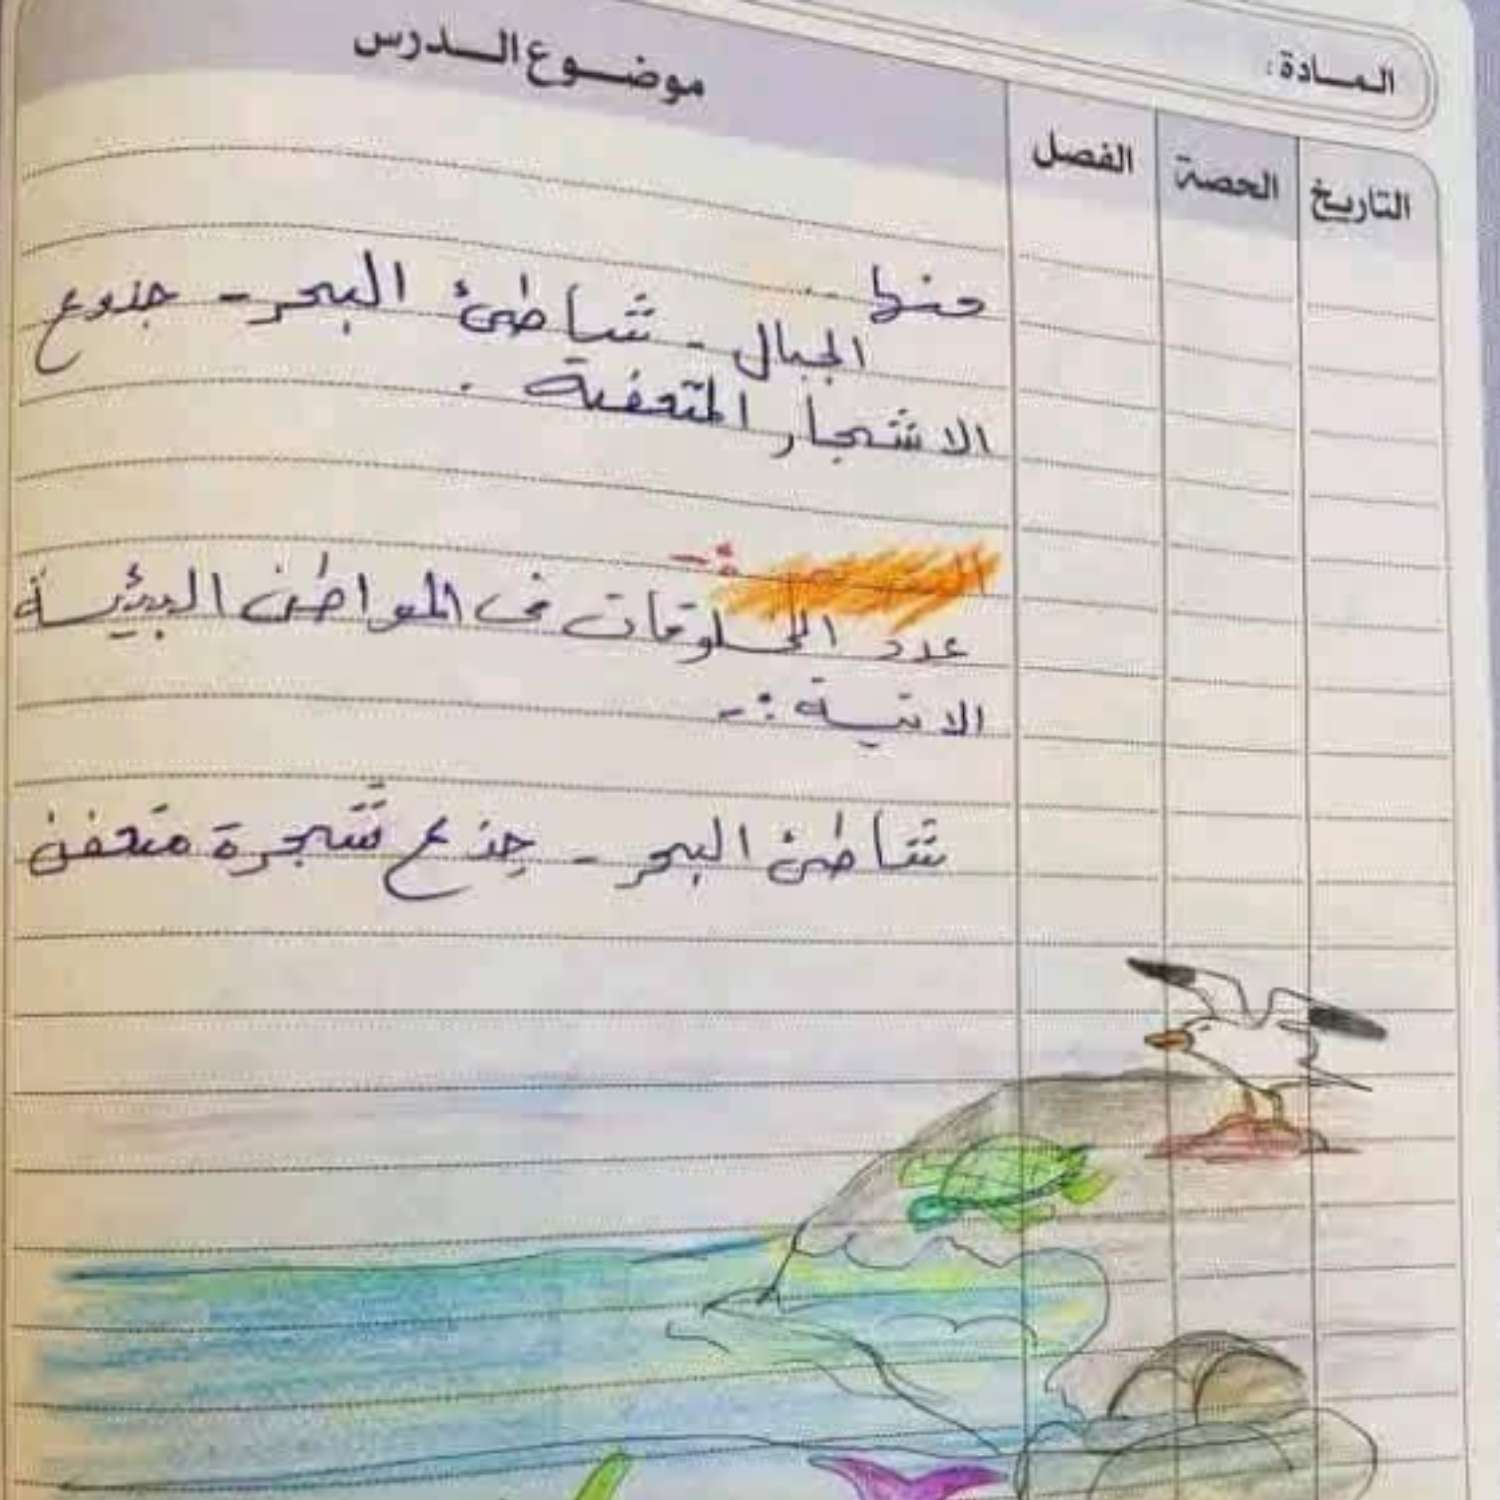 المادة:
التاريخ الحصة الفصل موضوع الدرس
منها
الجبال - شاطئ البحر - جذوع
الاشجار المتعفنة .
عدد المخلوقات في المواطن البيئية
الاتية :-
شاطئ البحر - جذع شجرة متعفن